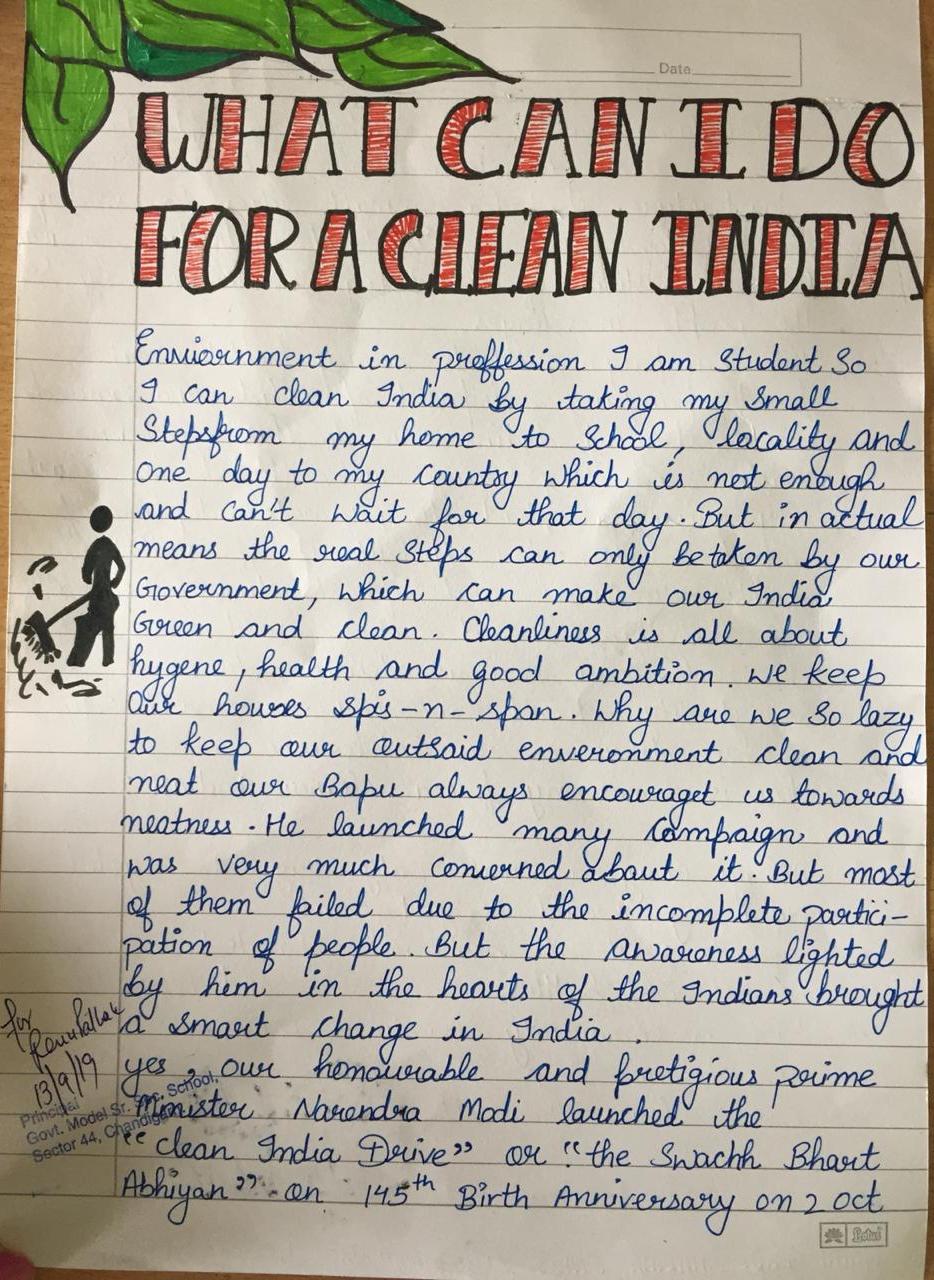 Date
WHAT CAN I DO
FOR A CLEAN INDIA
Enviornment in proffession I am Student So
I can clean India by taking my Small
Stepsfrom my home to School, locality and
one day to my country which is not enough
and can't wait for that day. But in actual
means the real steps can only betaken by our
Government, which can make our India
Green and clean. Cleanliness is all about
hygene, health and good ambition. we keep
Our houses spis-n-span. Why are we so lazy
to keep our outsaid enveronment clean and
neat our Bapu always encouraget us towards
neatness. He launched many Campaign and
was very much concerned about it. But most
of them failed due to the incomplete partici-
pation of people. But the awareness lighted
by him in the hearts of the Indians brought
a smart change in India.
yes, our honourable and pretigious prime
Minister Narendra Modi launched the
"clean India Drive" or "the Swachh Bhart
Abhiyan" on 145th Birth Anniversary on 2 Oct
for
13/9/19
Principal
Govt. Model Sr. Sec. School,
Sector 44, Chandigarh
Lotus